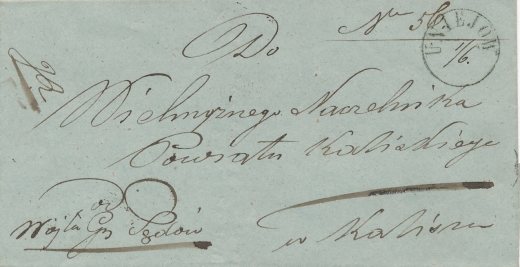 No 56
UNIEJÓW
1/6.
Do
Wielmożnego Naczelnika
Powiatu Kaliskiego
w Kaliszu
od
Wójta Gm